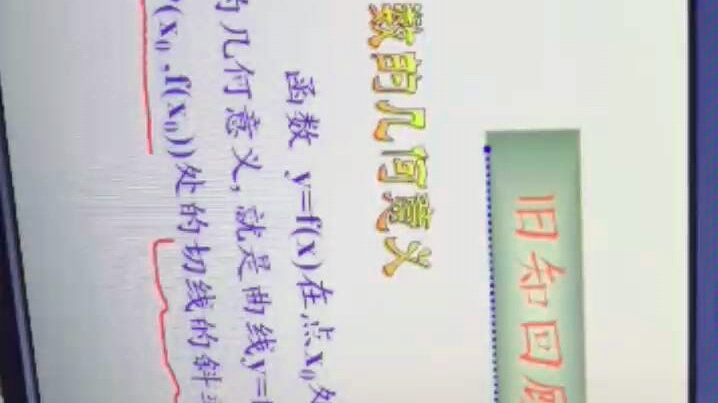 旧知回
数的几何意义
函数 y=f(x)在点x₀
的几何意义,就是曲线y=
(x₀,f(x₀))处的切线的斜